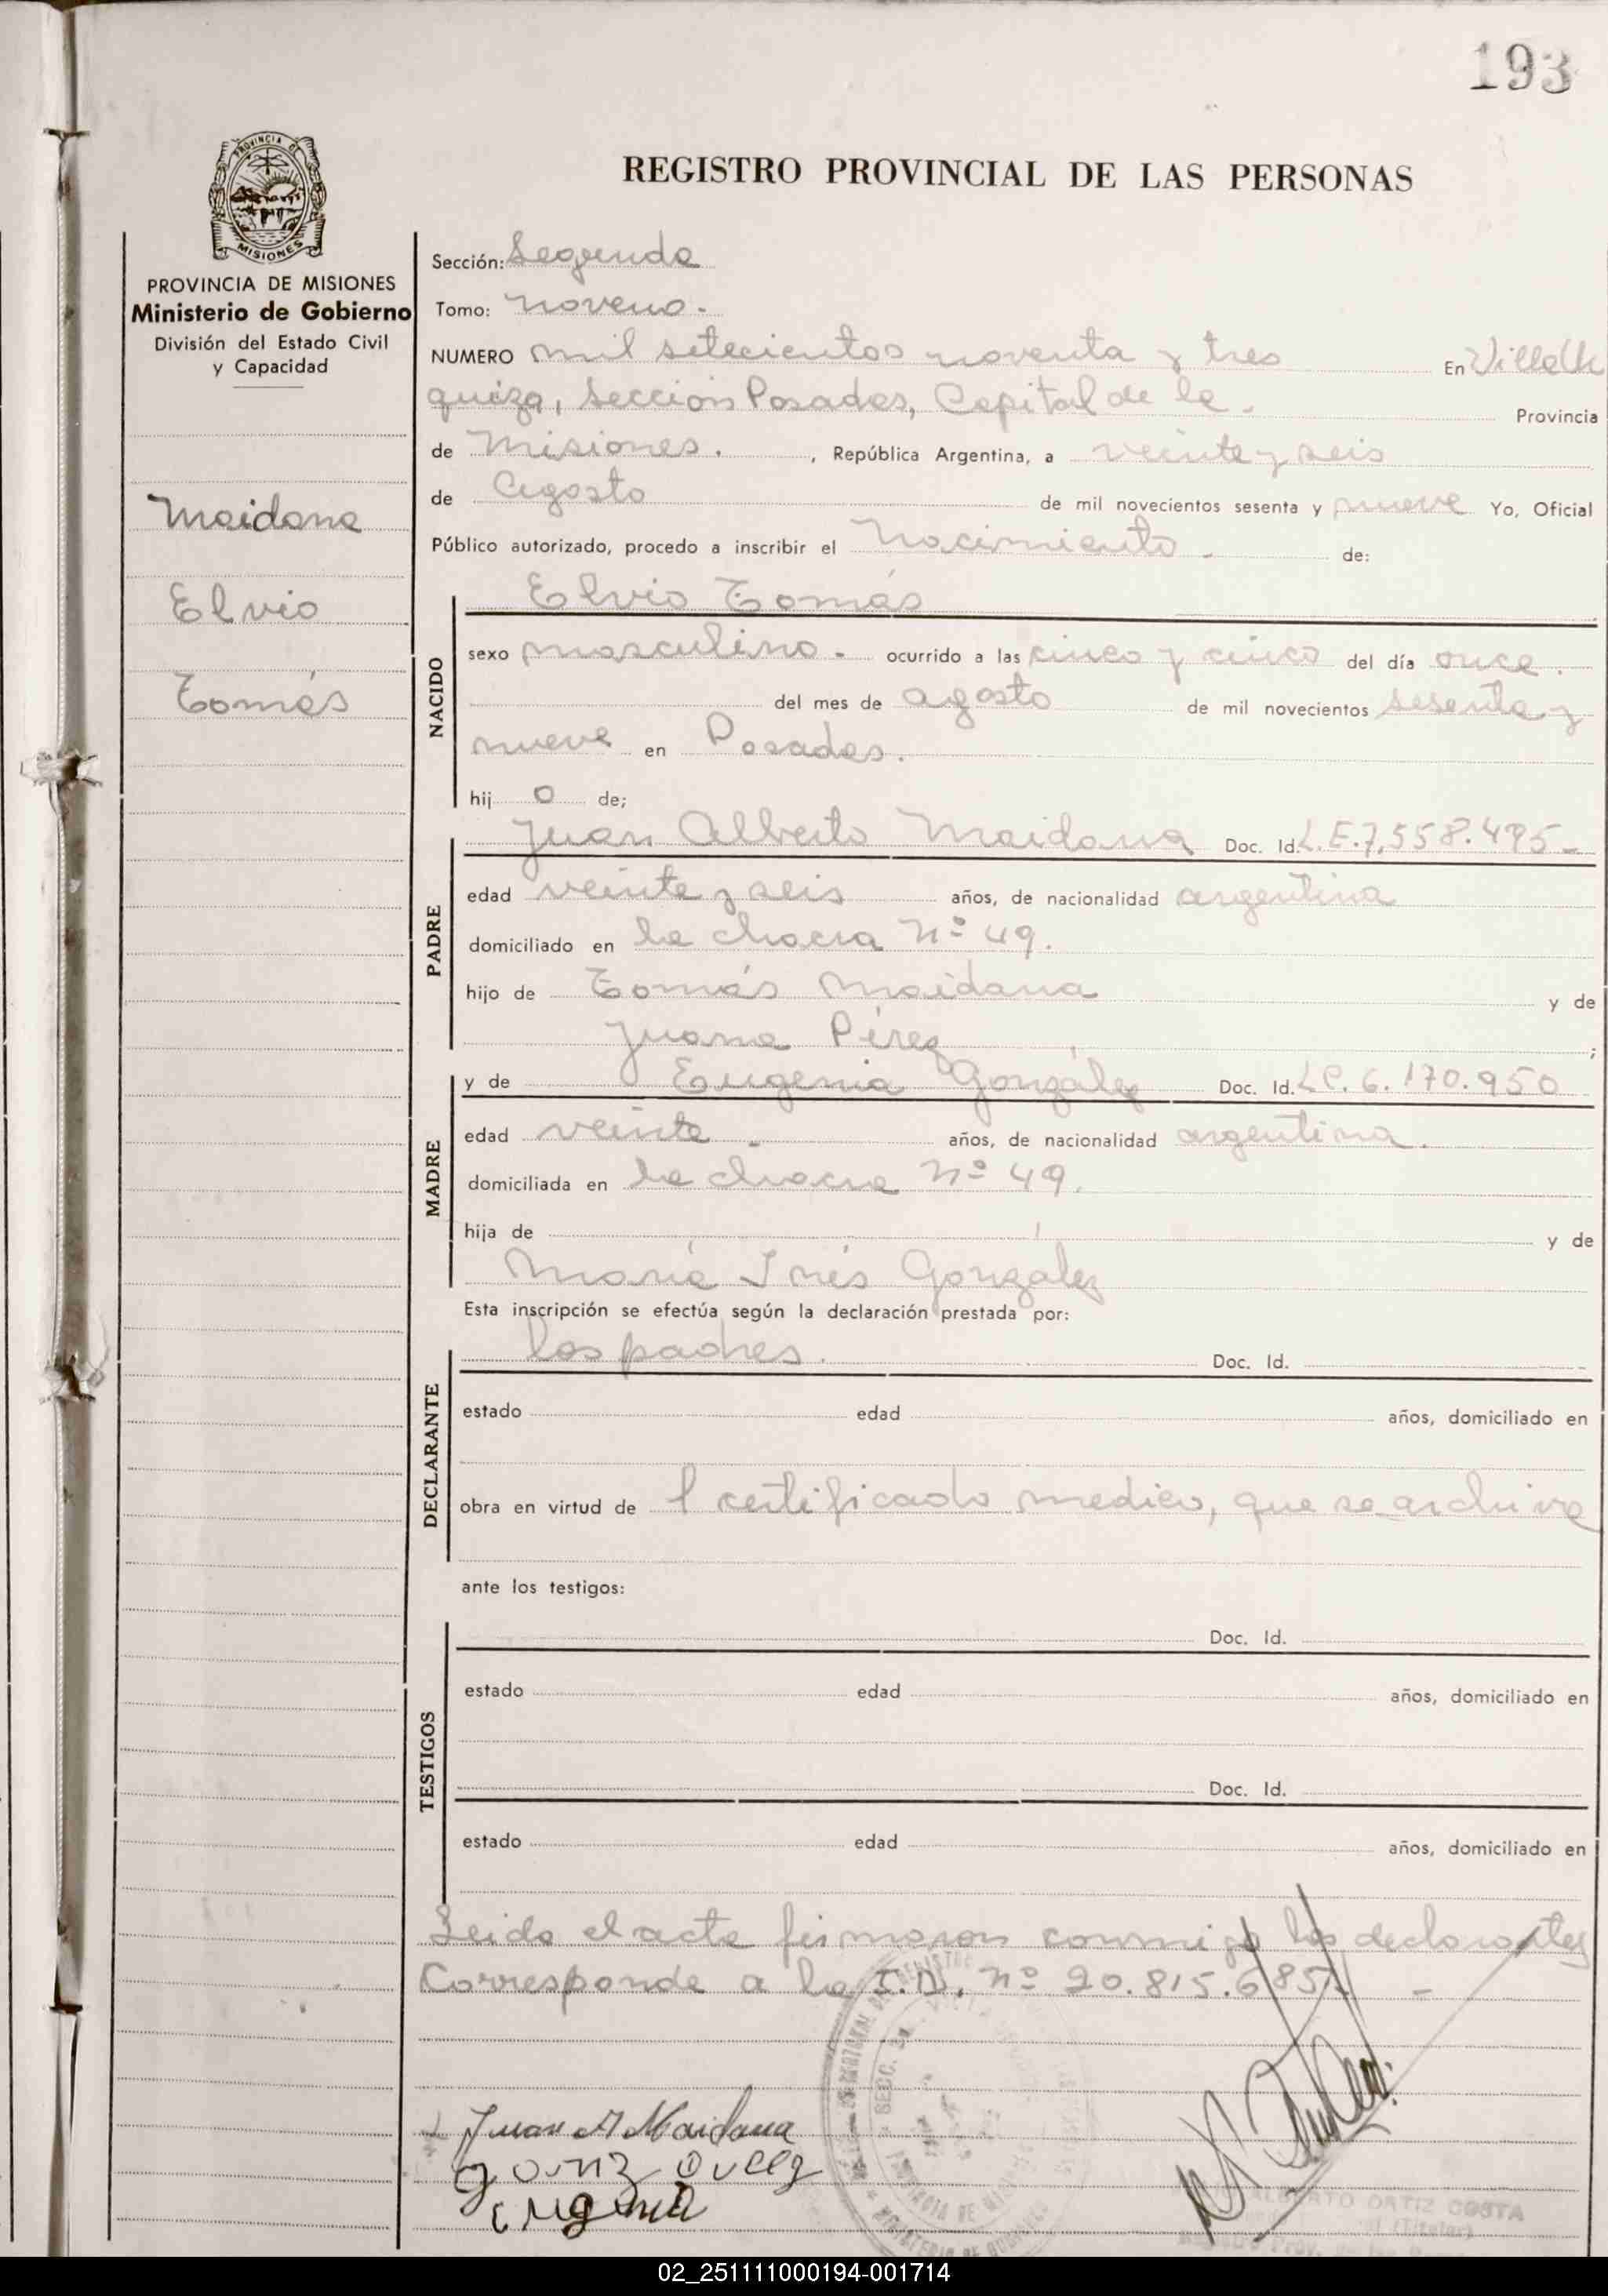 193
REGISTRO PROVINCIAL DE LAS PERSONAS
PROVINCIA DE
MISIONES
PROVINCIA DE MISIONES
Ministerio de Gobierno
División del Estado Civil
y Capacidad
Maidana
Elvio
Tomás
Sección: Segunda
Tomo: noveno.
NUMERO mil setecientos noventa y tres En Villa Ur
quiza, Sección Posadas, Capital de la. Provincia
de Misiones. , República Argentina, a veinte y seis
de Agosto de mil novecientos sesenta y nueve Yo, Oficial
Público autorizado, procedo a inscribir el Nacimiento. de:
NACIDO
Elvio Tomás
sexo masculino. ocurrido a las cinco y cinco del día once.
del mes de agosto de mil novecientos sesenta y
nueve en Posadas.
hij o de;
PADRE
Juan Alberto Maidana Doc. Id. L.E.7,558.495-
edad veinte y seis años, de nacionalidad argentina
domiciliado en la chacra Nº 49.
hijo de Tomás Maidana y de
Juana Pérez ;
MADRE
y de Eugenia González Doc. Id. L.C. 6.170.950
edad veinte. años, de nacionalidad argentina.
domiciliada en la chacra Nº 49.
hija de y de
María Inés González
Esta inscripción se efectúa según la declaración prestada por:
DECLARANTE
los padres. Doc. Id.
estado edad años, domiciliado en
obra en virtud de l certificado medico, que se archiva
ante los testigos:
TESTIGOS
Doc. Id.
estado edad años, domiciliado en
Doc. Id.
estado edad años, domiciliado en
Leida el acta firmaron conmigo los declarantes
Corresponde a la I.D. nº 20.815.685. -
Juan A Maidana
eugenia
ALBERTO ORTIZ COSTA
(Titular)
02_251111000194-001714